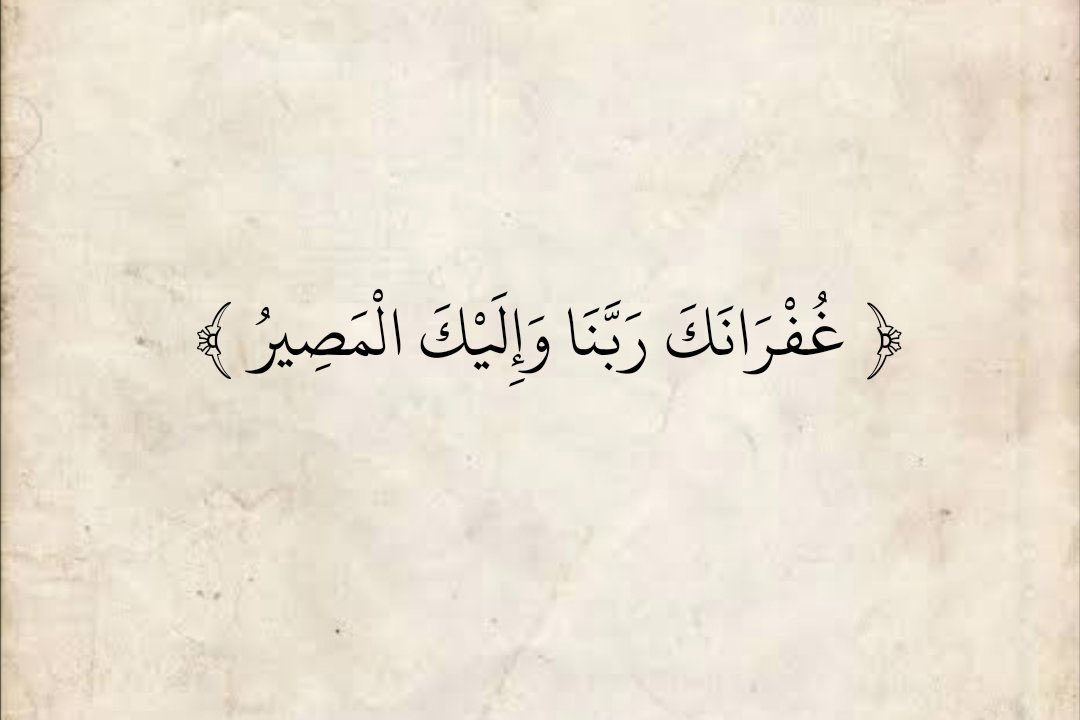 ﴿ غُفْرَانَكَ رَبَّنَا وَإِلَيْكَ الْمَصِيرُ ﴾